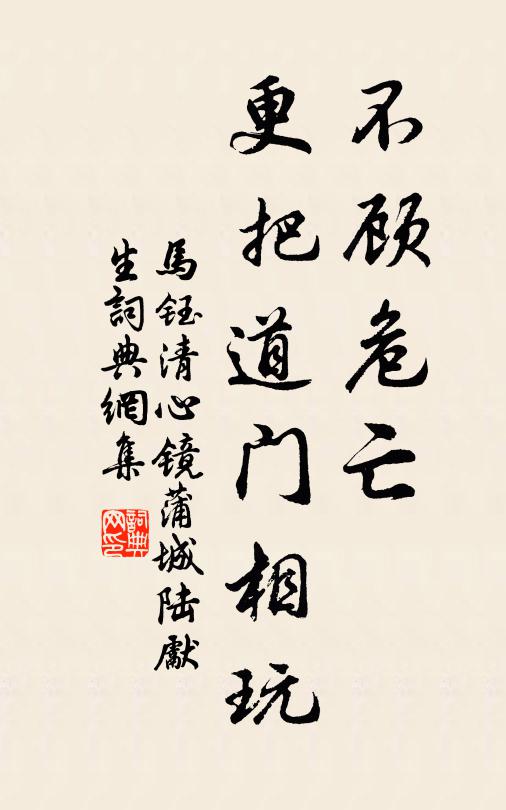 不顾危亡
更把道门相玩
馬鈺清心镜蒲城陆獻
生詞典網集
詞典网印